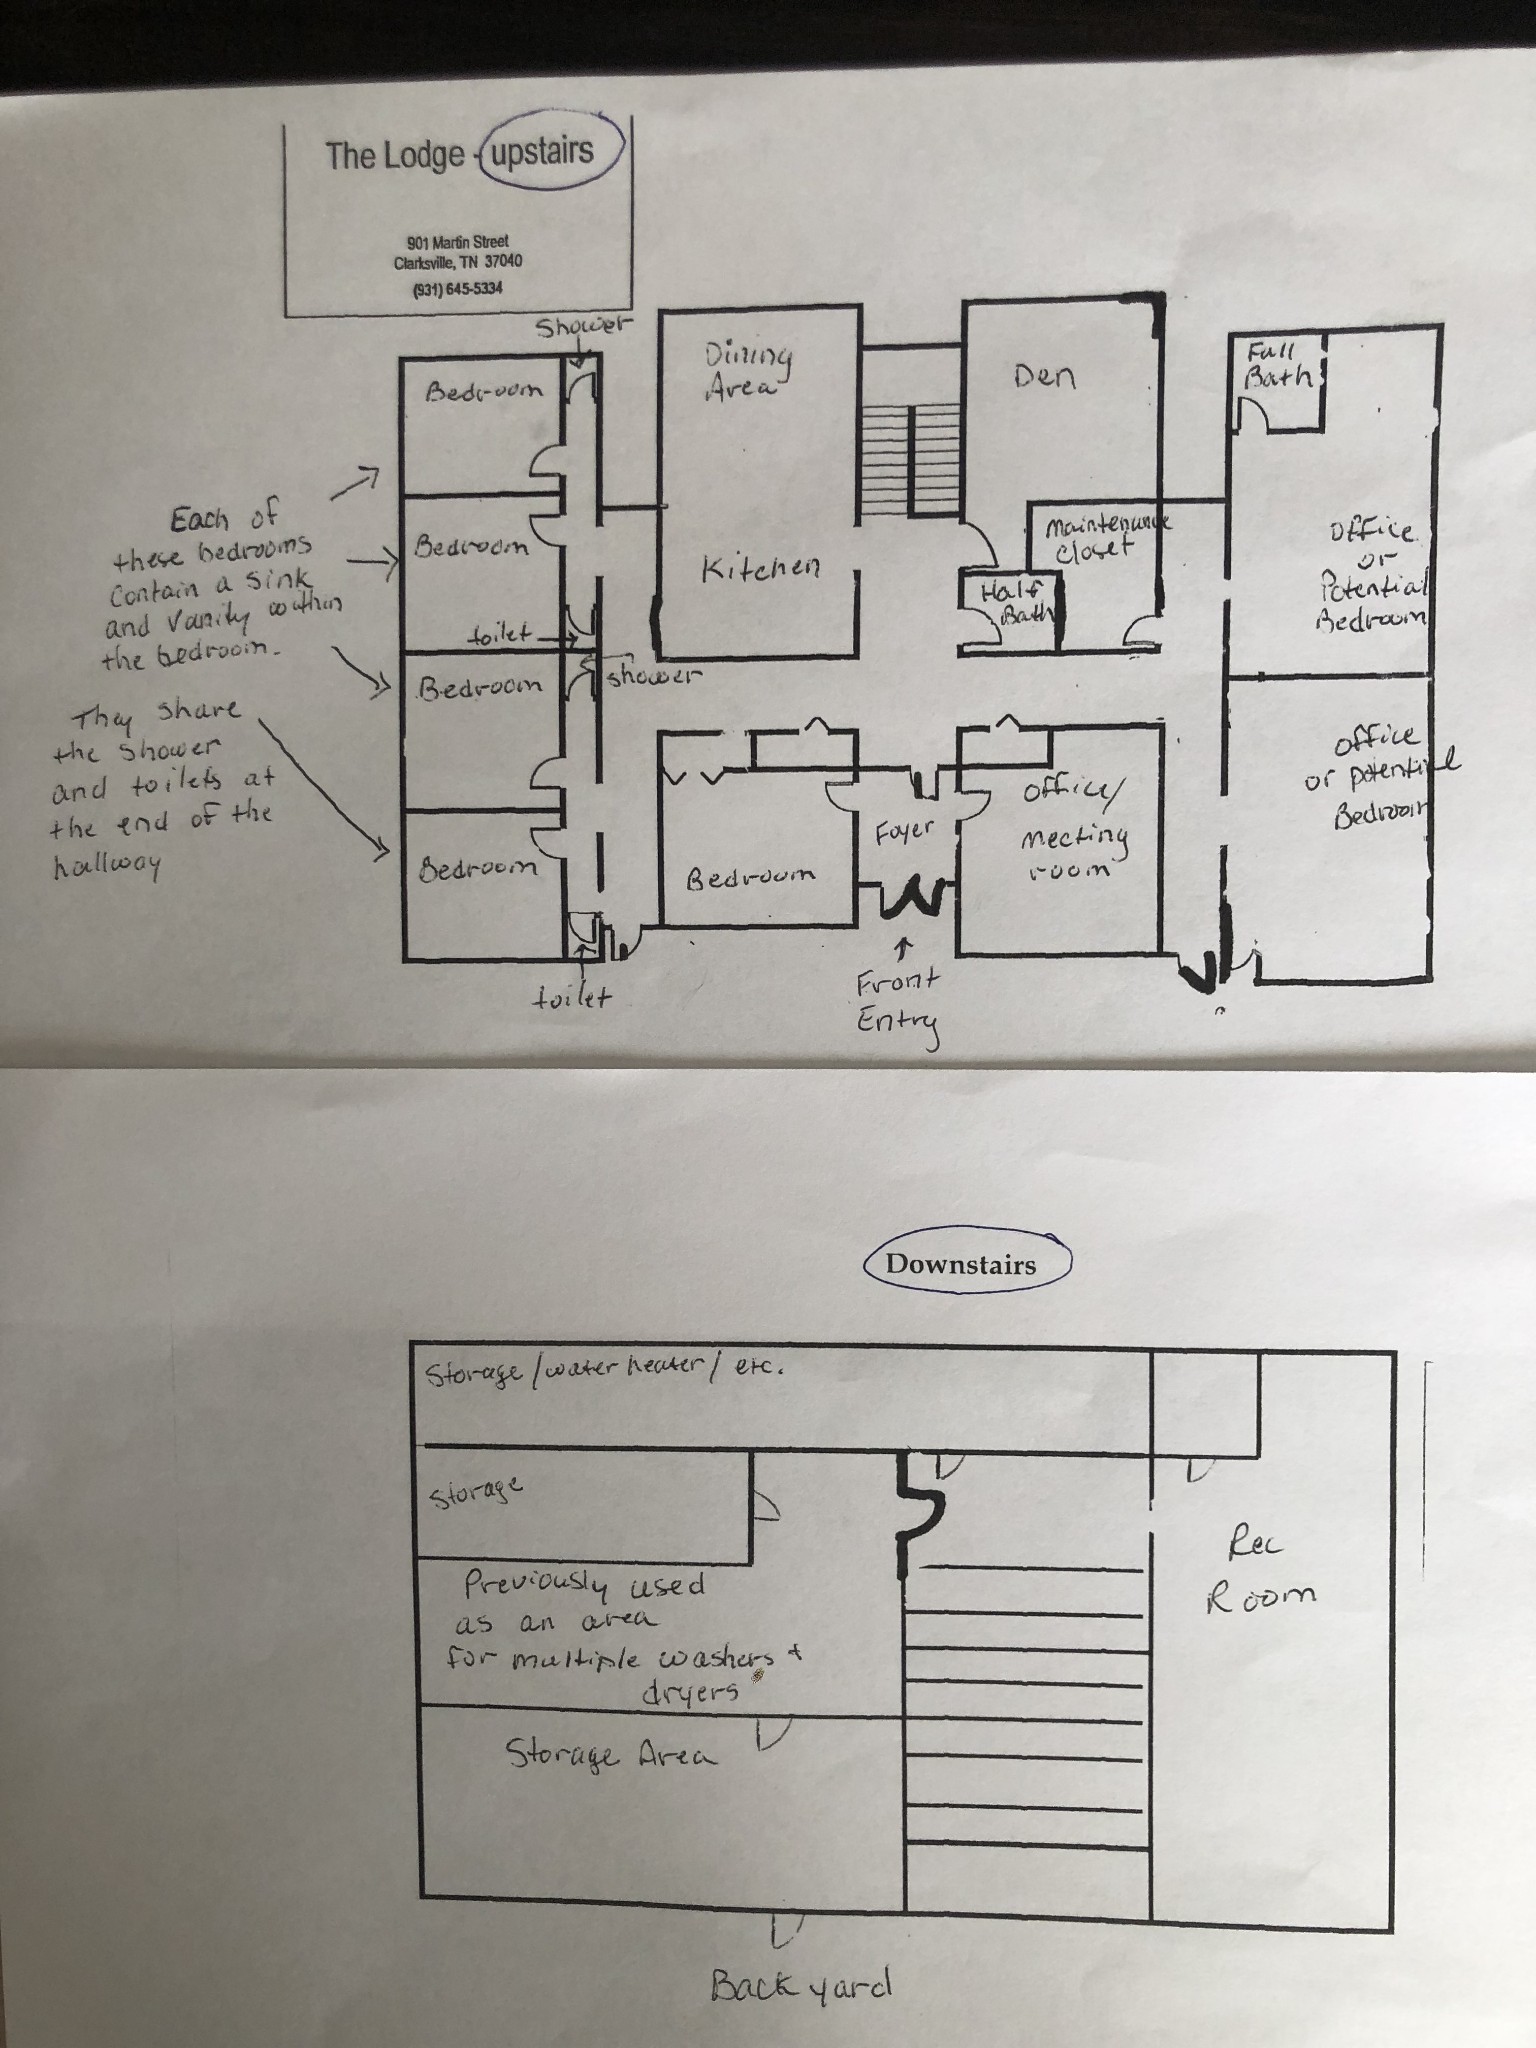 The Lodge - upstairs
901 Martin Street
Clarksville, TN 37040
(931) 645-5334
Shower
Bedroom
Bedroom
toilet
Bedroom
shower
Bedroom
toilet
Each of
these bedrooms
contain a sink
and vanity within
the bedroom.
They share
the shower
and toilets at
the end of the
hallway
Dining
Area
Kitchen
Den
Maintenance
Closet
Half
Bath
Full
Bath
Office
or
Potential
Bedroom
office
or potential
Bedroom
Bedroom
Foyer
Office/
Meeting
room
Front
Entry
Downstairs
Storage/water heater/ etc.
Storage
Previously used
as an area
for multiple washers +
dryers
Storage Area
Rec
Room
Back yard